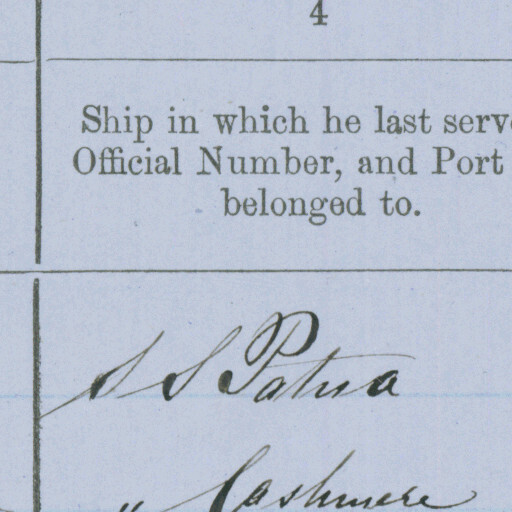 4
Ship in which he last serv
Official Number, and Port
belonged to.
S S Patna
" Cashmere